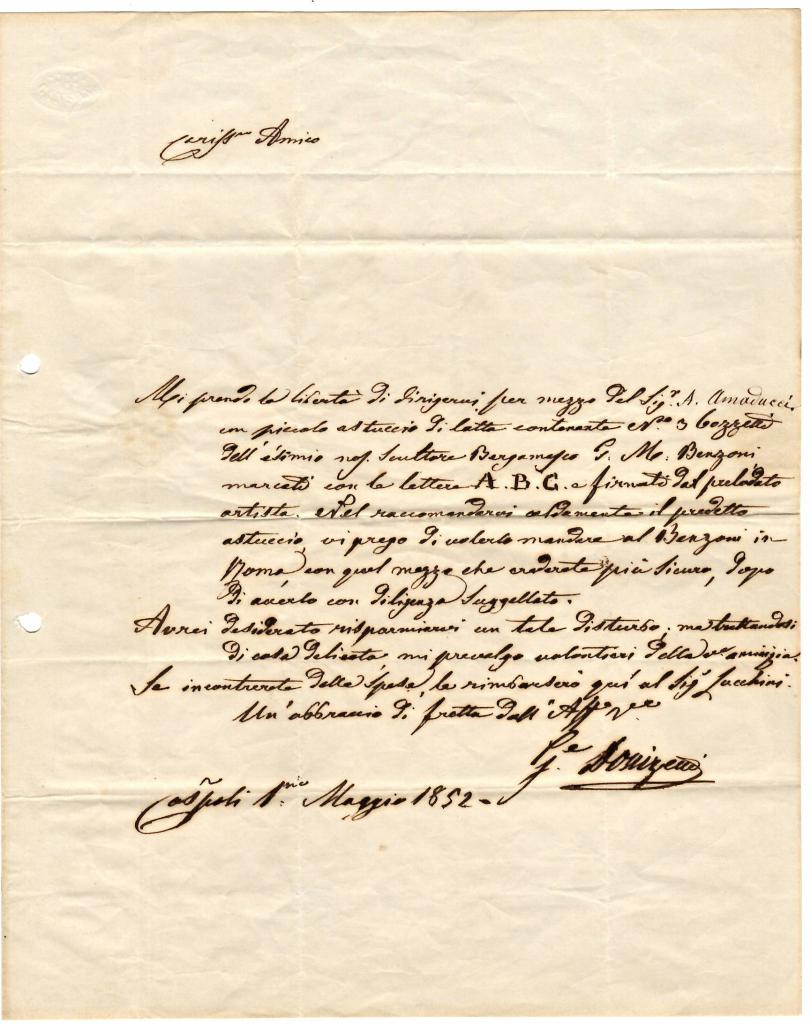 Cariss.mo Amico
Mi prendo la libertà di dirigervi per mezzo del Sig.r A. Amaducci
un piccolo astuccio di latta contenente N.ro 3 bozzetti
dell'esimio nos. Scultore Bergamasco G. M. Benzoni
marcati con le lettere A. B. C. e firmati dal prelodato
artista. Nel raccomandarvi caldamente il predetto
astuccio, vi prego di volerlo mandare al Benzoni in
Roma con quel mezzo che crederete più sicuro, dopo
di averlo con diligenza suggellato.
Avrei desiderato risparmiarvi un tale disturbo, ma trattandosi
di cosa delicata mi prevalgo volontieri della v.ra amicizia.
Se incontrerete delle spese, le rimborserò quí al Sig.r Zucchini.
Un'abbraccio di fretta dall'Aff.
G.e Donizetti
1.mo Maggio 1852